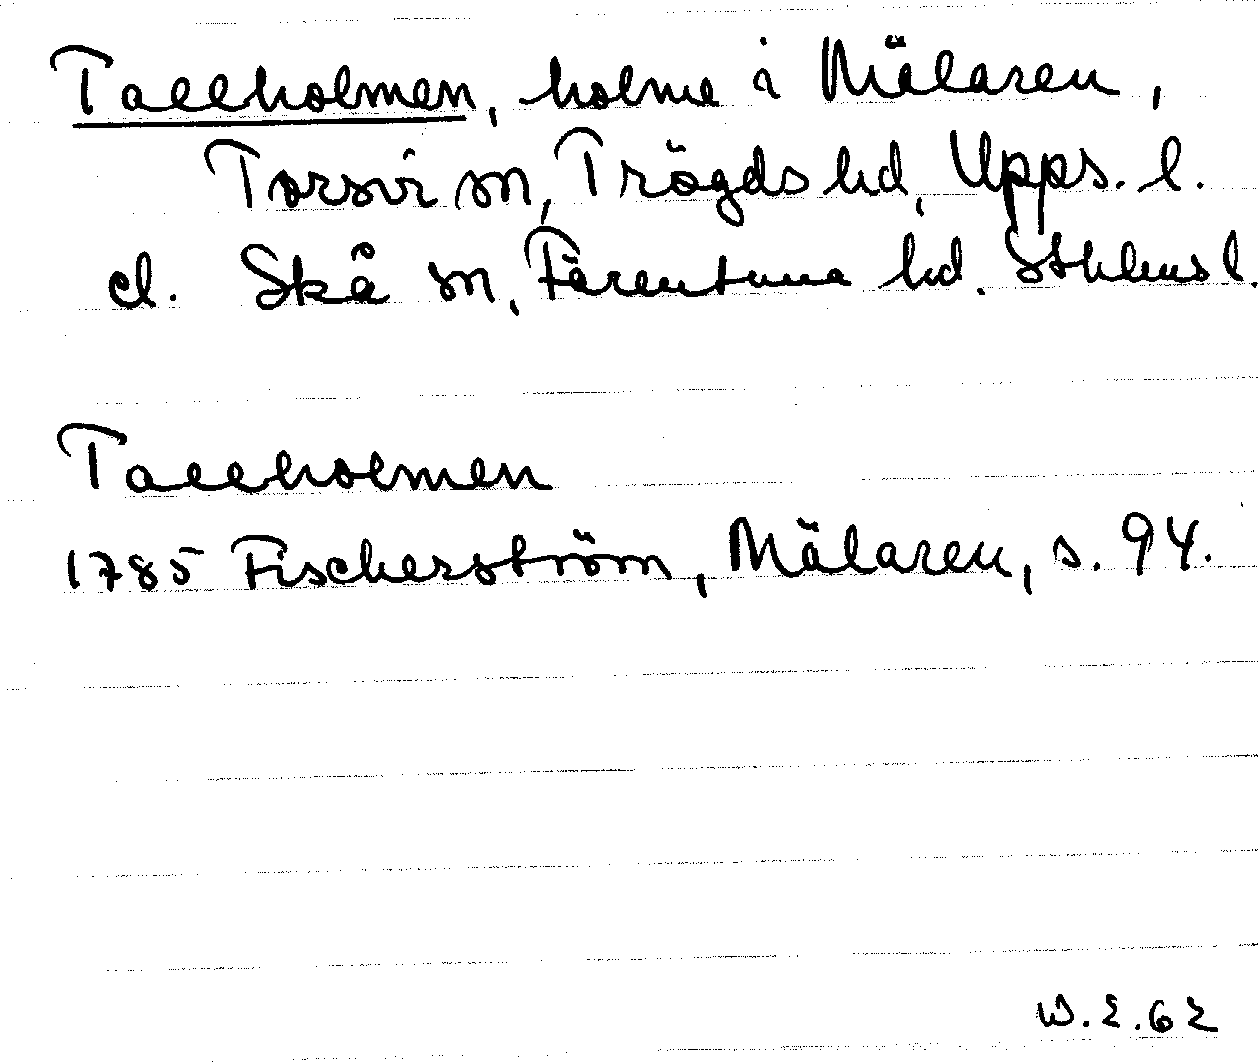 Tallholmen, holme i Mälaren,
Torsvi sn, Trögds hd, Upps. l.
el. Skå sn, Färentuna hd. Sthlms l.
Tallholmen
1785 Fischerström, Mälaren, s. 94.
W.E.62